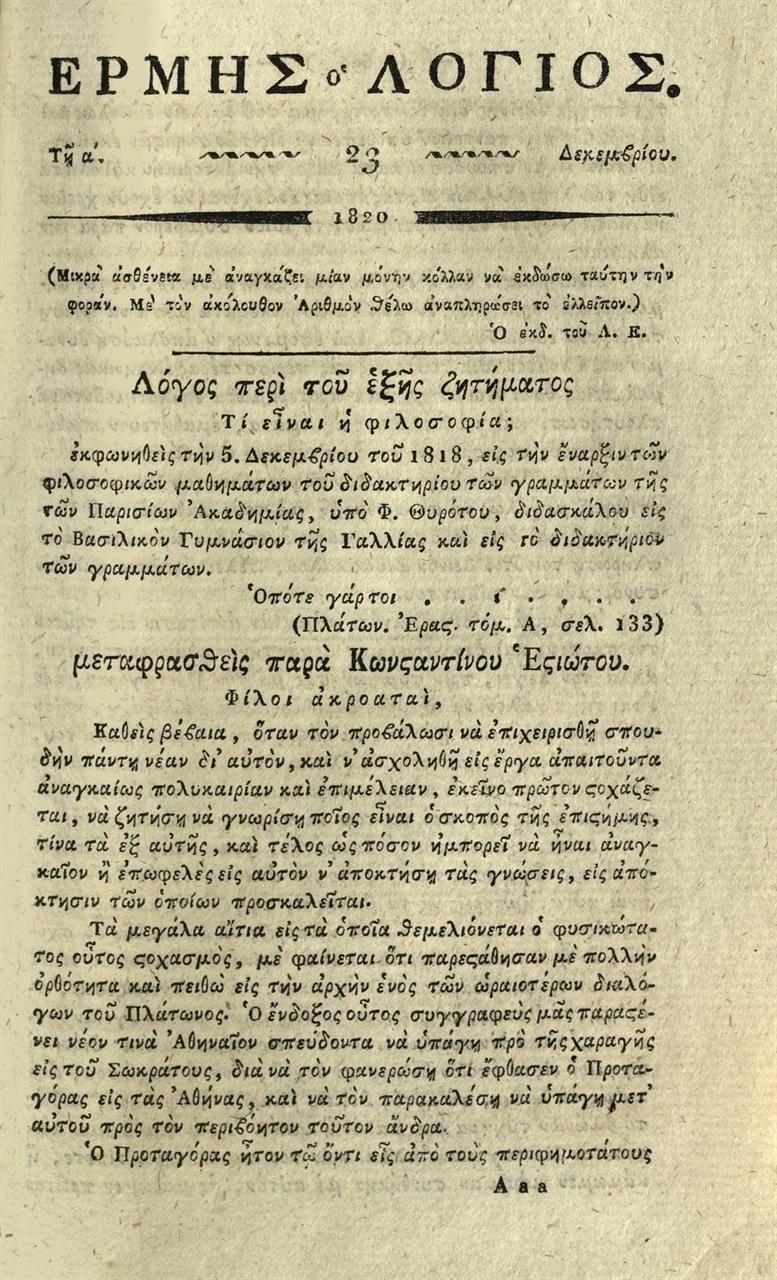 ΕΡΜΗΣ ὁ ΛΟΓΙΟΣ.
Τῇ α΄. 23 Δεκεμβρίου.
1820.
(Μικρὰ ἀσθένεια μὲ ἀναγκάζει μίαν μόνην κόλλαν νὰ ἐκδώσω ταύτην τὴν
φοράν. Μὲ τὸν ἀκόλουθον Ἀριθμὸν θέλω ἀναπληρώσει τὸ ἐλλεῖπον.)
Ὁ ἐκδ. τοῦ Λ. Ε.
Λόγος περὶ τοῦ ἑξῆς ζητήματος
Τί εἶναι ἡ φιλοσοφία;
ἐκφωνηθεὶς τὴν 5. Δεκεμβρίου τοῦ 1818, εἰς τὴν ἔναρξιν τῶν
φιλοσοφικῶν μαθημάτων τοῦ διδακτηρίου τῶν γραμμάτων τῆς
τῶν Παρισίων Ἀκαδημίας, ὑπὸ Φ. Θυρότου, διδασκάλου εἰς
τὸ Βασιλικὸν Γυμνάσιον τῆς Γαλλίας καὶ εἰς τὸ διδακτήριον
τῶν γραμμάτων.
Ὁπότε γάρτοι . . . . . . .
(Πλάτων. Ἐρας. τόμ. Α, σελ. 133)
μεταφρασθεὶς παρὰ Κωνϛαντίνου Ἑϛιώτου.
Φίλοι ἀκροαταὶ,
Καθεὶς βέβαια, ὅταν τὸν προβάλωσι νὰ ἐπιχειρισθῇ σπου-
δὴν πάντη νέαν δι’ αὐτὸν, καὶ ν’ ἀσχοληθῇ εἰς ἔργα ἀπαιτοῦντα
ἀναγκαίως πολυκαιρίαν καὶ ἐπιμέλειαν, ἐκεῖνο πρῶτον ϛοχάζε-
ται, νὰ ζητήσῃ νὰ γνωρίσῃ ποῖος εἶναι ὁ σκοπὸς τῆς ἐπιϛήμης,
τίνα τὰ ἐξ αὐτῆς, καὶ τέλος ὡς πόσον ἠμπορεῖ νὰ ἦναι ἀναγ-
καῖον ἢ ἐπωφελὲς εἰς αὐτὸν ν’ ἀποκτήσῃ τὰς γνώσεις, εἰς ἀπό-
κτησιν τῶν ὁποίων προσκαλεῖται.
Τὰ μεγάλα αἴτια εἰς τὰ ὁποῖα θεμελιόνεται ὁ φυσικώτα-
τος οὗτος ϛοχασμὸς, μὲ φαίνεται ὅτι παρεϛάθησαν μὲ πολλὴν
ὀρθότητα καὶ πειθὼ εἰς τὴν ἀρχὴν ἑνὸς τῶν ὡραιοτέρων διαλό-
γων τοῦ Πλάτωνος. Ὁ ἔνδοξος οὗτος συγγραφεὺς μᾶς παραϛέ-
νει νέον τινὰ Ἀθηναῖον σπεύδοντα νὰ ὑπάγῃ πρὸ τῆς χαραγῆς
εἰς τοῦ Σωκράτους, διὰ νὰ τὸν φανερώσῃ ὅτι ἔφθασεν ὁ Πρωτα-
γόρας εἰς τὰς Ἀθήνας, καὶ νὰ τὸν παρακαλέσῃ νὰ ὑπάγῃ μετ’
αὐτοῦ πρὸς τὸν περιβόητον τοῦτον ἄνδρα.
Ὁ Πρωταγόρας ἦτον τῷ ὄντι εἷς ἀπὸ τοὺς περιφημοτάτους
Α a a